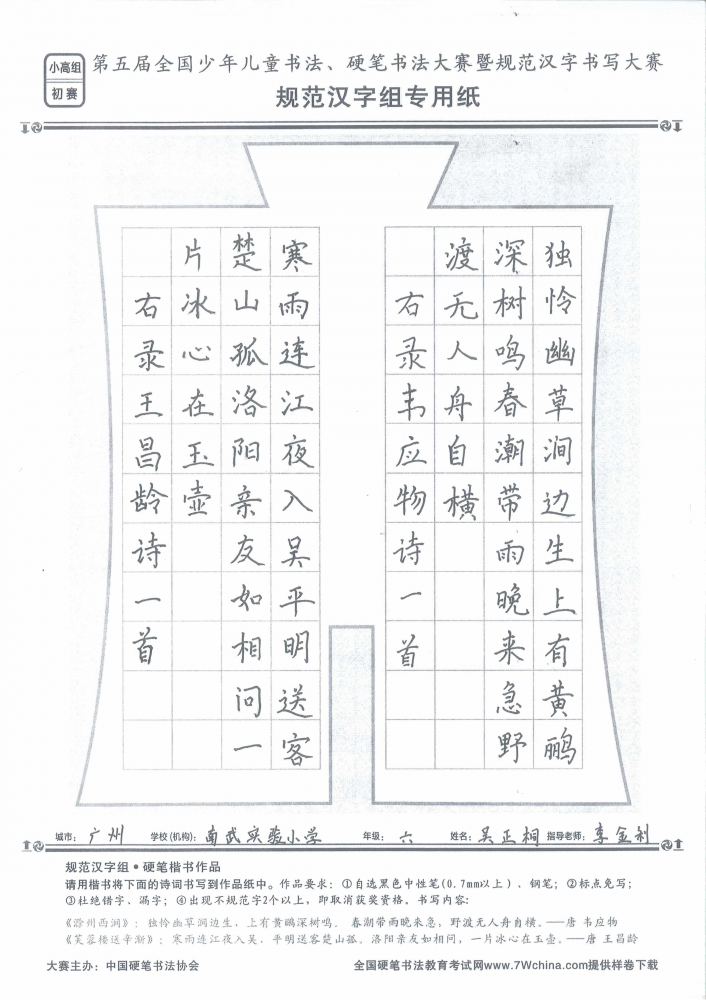 小高组
初赛
第五届全国少年儿童书法、硬笔书法大赛暨规范汉字书写大赛
规范汉字组专用纸
独怜幽草涧边生上有黄鹂
深树鸣春潮带雨晚来急野
渡无人舟自横
右录韦应物诗一首
寒雨连江夜入吴平明送客
楚山孤洛阳亲友如相问一
片冰心在玉壶
右录王昌龄诗一首
城市：广州 学校(机构)：南武实验小学 年级：六 姓名：吴正桐 指导老师：李金利
规范汉字组•硬笔楷书作品
请用楷书将下面的诗词书写到作品纸中。作品要求：①自选黑色中性笔(0.7mm以上)、钢笔；②标点免写；
③杜绝错字、漏字；④出现不规范字2个以上，即取消获奖资格，书写内容：
《滁州西涧》：独怜幽草涧边生，上有黄鹂深树鸣。 春潮带雨晚来急，野渡无人舟自横。——唐 韦应物
《芙蓉楼送辛渐》：寒雨连江夜入吴，平明送客楚山孤。洛阳亲友如相问，一片冰心在玉壶。——唐 王昌龄
大赛主办：中国硬笔书法协会 全国硬笔书法教育考试网www.7Wchina.com提供样卷下载